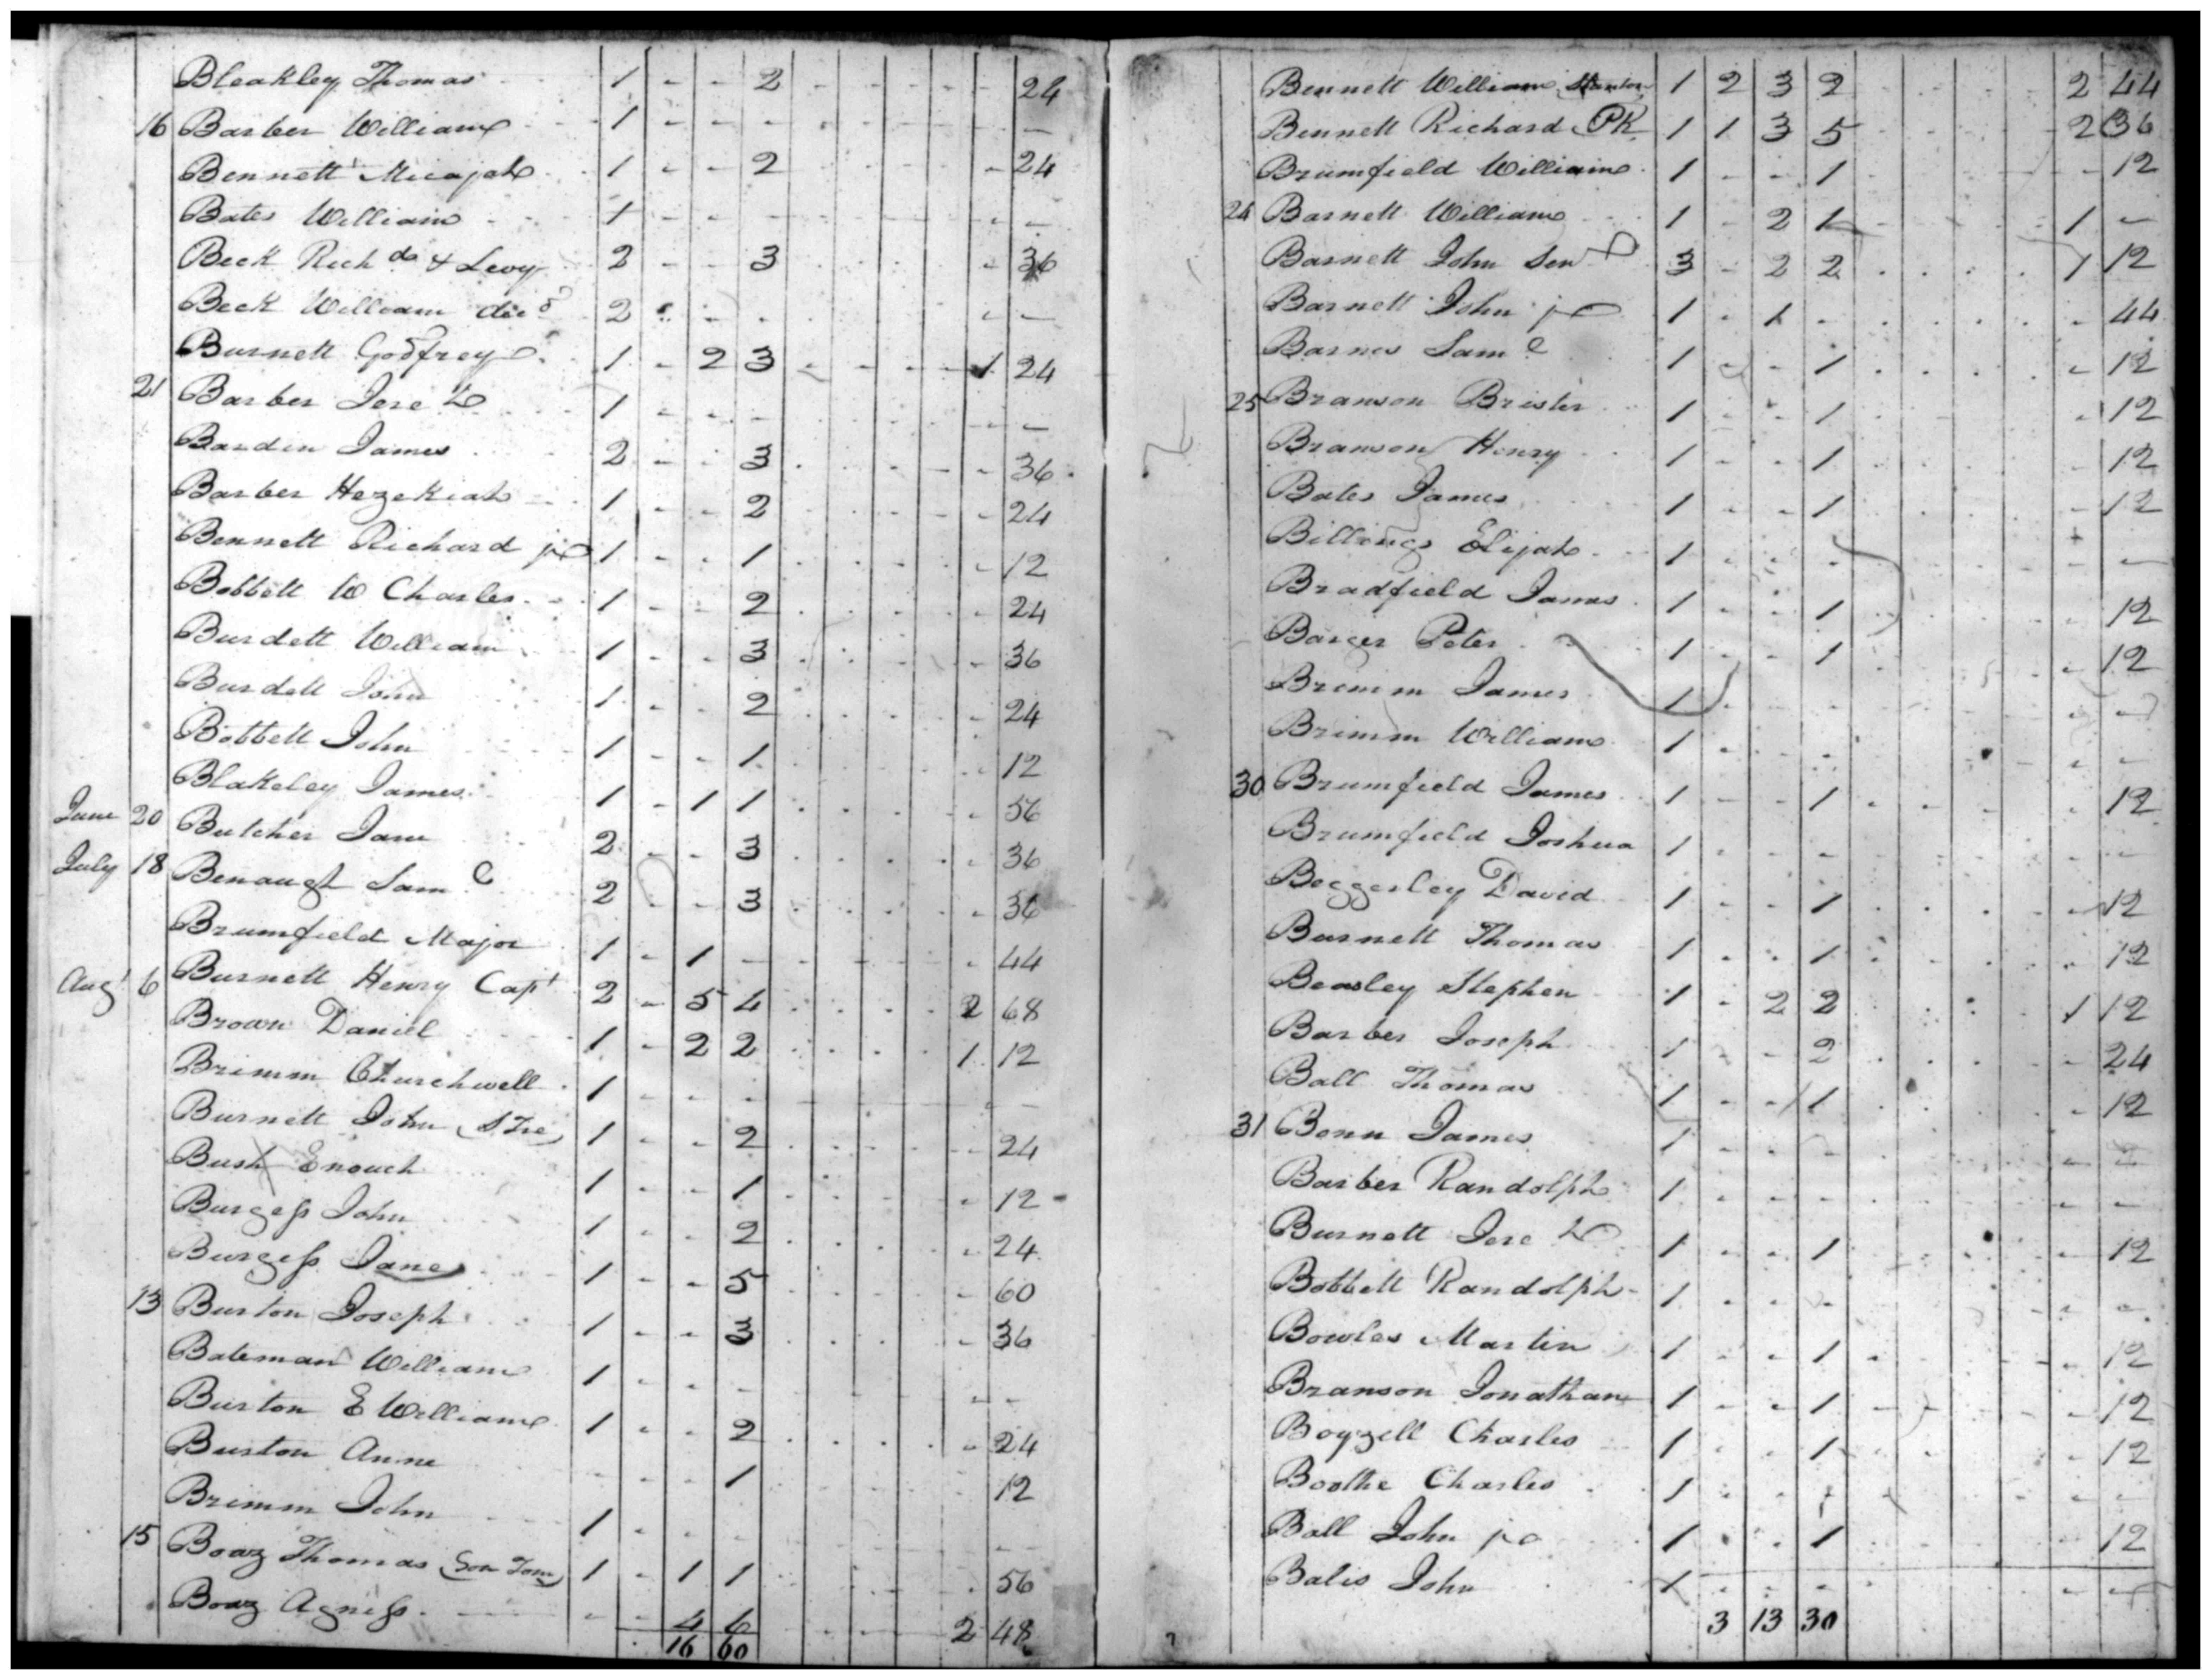 Bleakley Thomas 1 - - 2 - - - - - 24
16 Barber William 1 - - - - - - - - -
Bennett Micajah 1 - - 2 - - - - - 24
Bates William 1 - - - - - - - - -
Beck Richds & Levy 2 - - 3 - - - - - 36
Beck William decd 2 - - - - - - - - -
Burnett Godfrey 1 - 2 3 - - - - 1 24
21 Barber Jereh 1 - - - - - - - - -
Barden James 2 - - 3 - - - - - 36
Barber Hezekiah 1 - - 2 - - - - - 24
Bennett Richard jr 1 - - 1 - - - - - 12
Bobbett W Charles 1 - - 2 - - - - - 24
Burdett William 1 - - 3 - - - - - 36
Burdett John 1 - - 2 - - - - - 24
Bobbett John 1 - - 1 - - - - - 12
Blakeley James 1 - 1 1 - - - - - 56
June 20 Butcher Jane 2 - - 3 - - - - - 36
July 18 Benaugh Saml 2 - - 3 - - - - - 36
Brumfield Major 1 - 1 - - - - - - 44
Augt 6 Burnett Henry Capt 2 - 5 4 - - - - 2 68
Brown Daniel 1 - 2 2 - - - - 1 12
Brimm Churchwell 1 - - - - - - - - -
Burnett John S Tre 1 - - 2 - - - - - 24
Bush Enouch 1 - - 1 - - - - - 12
Burgess John 1 - - 2 - - - - - 24
Burgess Jane 1 - - 5 - - - - - 60
13 Burton Joseph 1 - - 3 - - - - - 36
Bateman William 1 - - - - - - - - -
Burton E William 1 - - 2 - - - - - 24
Burton Anne - - - 1 - - - - - 12
Brimm John 1 - - - - - - - - -
15 Boaz Thomas (Son Tom) 1 - 1 1 - - - - - 56
Boaz Agness - - 4 6 - - - - 2 48
16 60
Bennett William Stanton 1 2 3 2 - - - - 2 44
Bennett Richard PR 1 1 3 5 - - - - 2 36
Brumfield William 1 - - 1 - - - - - 12
24 Barnett William 1 - 2 1 - - - - 1 -
Barnett John Senr 3 - 2 2 - - - - 1 12
Barnett John jr 1 - 1 - - - - - - 44
Barnes Saml 1 - - 1 - - - - - 12
25 Branson Brister 1 - - 1 - - - - - 12
Branson Henry 1 - - 1 - - - - - 12
Bates James 1 - - 1 - - - - - 12
Billings Elijah 1 - - - - - - - - -
Bradfield James 1 - - 1 - - - - - 12
Barger Peter 1 - - 1 - - - - - 12
Brimm James 1 - - - - - - - - -
Brimm William 1 - - - - - - - - -
30 Brumfield James 1 - - 1 - - - - - 12
Brumfield Joshua 1 - - - - - - - - -
Beggerley David 1 - - 1 - - - - - 12
Burnett Thomas 1 - - 1 - - - - - 12
Beasley Stephen 1 - 2 2 - - - - 1 12
Barber Joseph 1 - - 2 - - - - - 24
Ball Thomas 1 - - 1 - - - - - 12
31 Benn James 1 - - - - - - - - -
Barber Randolph 1 - - - - - - - - -
Burnett Jereh 1 - - 1 - - - - - 12
Bobbett Randolph 1 - - - - - - - - -
Bowles Martin 1 - - 1 - - - - - 12
Branson Jonathan 1 - - 1 - - - - - 12
Boyzell Charles 1 - - 1 - - - - - 12
Boothe Charles 1 - - - - - - - - -
Ball John jr 1 - - 1 - - - - - 12
Balis John 1 - - - - - - - - -
3 13 30